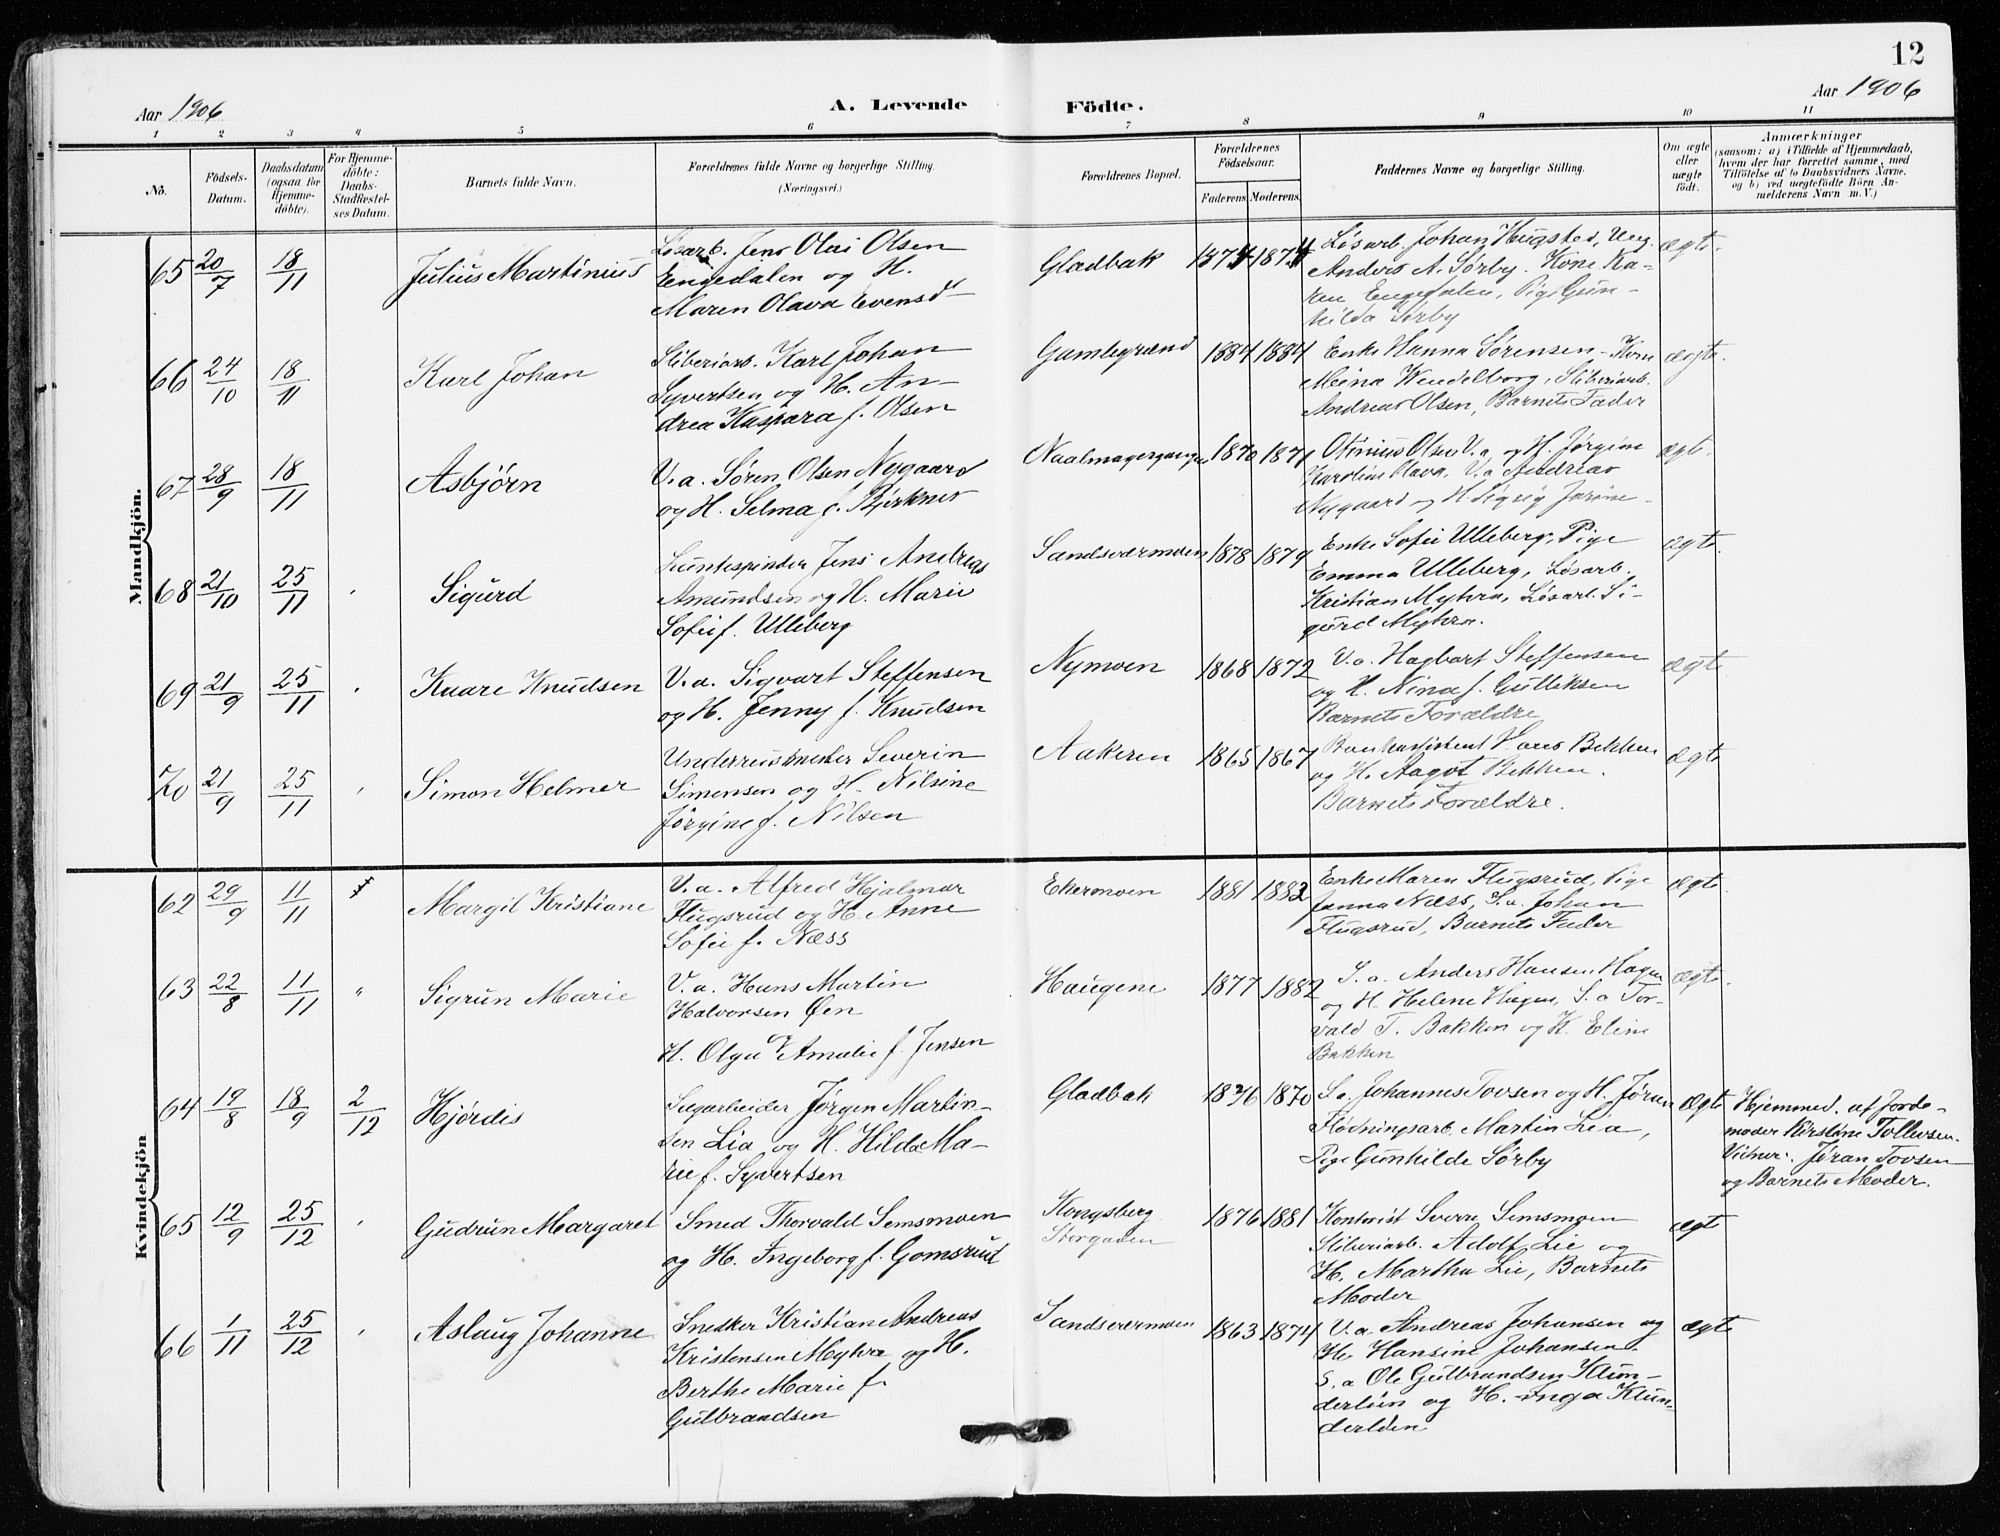 12
Aar 1906
A. Levende Födte.
Aar 1906
1 2 3 4 5 6 7 8 9 10 11
No. Födsels-Datum. Daabsdatum (ogsaa for Hjemmedöbte). For Hjemmedöbte: Daabs-Stadfæstelses Datum. Barnets fulde Navn. Forældrenes fulde Navne og borgerlige Stilling. (Næringsvei.) Forældrenes Bopæl. Forældrenes Födselsaar. Faderens. Moderens. Faddernes Navne og borgerlige Stilling. Om ægte eller uægte födt. Anmærkninger (saasom: a) i Tilfælde af Hjemmedaab, hvem der har forrettet samme, med Tilföielse af to Daabsvidners Navne, og b) ved uægtefödte Börn Anmelderens Navn m. V.)
Mandkjön.
65 20/7 18/11 Julius Martinius
Løsarb. Jens Olai Olsen
Engedalen og H.
Maren Olava Evensd
Gladbak 1874 1874
Løsarb. Johan Hugsted, Ung.
Anders A. Sørby. Kone Ka-
ren Engedalen, Pige Gun-
hilda Sørby
ægte.
66 24/10 18/11 Karl Johan
Sliberiarb. Karl Johan
Syvertsen og H. An-
drea Kaspara f. Olsen
Gamlegrænd 1884 1884
Enke Hanna Sørensen - Kone
Meina Wendelborg, Sliberiarb.
Andreas Olsen, Barnets Fader
ægte.
67 28/9 18/11 Asbjörn
V.a. Søren Olsen Nygaard
og H. Selma f. Bjerknes
Naalmagergangen 1870 1871
Otinius Olsen V.a. og H. Jørgine
Karoline Olava, V.a Andreas
Nygaard og H Sigrig
ægte.
68 21/10 25/11 Sigurd
Luntespinder Jens Andreas
Amundsen og H. Marie
Sofie f. Ulleberg
Sandsværmoen 1878 1879
Enke Sofie Ulleberg, Pige
Emma Ulleberg, Løsarb.
Kristian Myhra, Løsarb. Si-
gurd Myhra.
ægte.
69 21/9 25/11 Kaare Knudsen
V.a. Sigvart Steffensen
og H. Jenny f. Knudsen
Nymoen 1868 1872
V.a. Hagbart Steffensen
og H. Nina f. Gulliksen
Barnets Forældre
ægte.
70 21/9 25/11 Simon Helmer
Severin
Simensen og H. Nilsine
Jørgine f. Nilsen
Aakeren 1865 1867
Hans Bekken
og H. Aagot Bekken.
Barnets Forældre.
ægte
Kvindekjön
62 29/9 11/11 Margit Kristiane
V.a. Alfred Hjalmar
Flugsrud og H. Anne
Sofie f. Næss
Ekermoen 1881 1883
Enke Maren Flugsrud, Pige
Janna Næss, S.a. Johan
Flugsrud, Barnets Fader
ægte
63 22/8 11/11 " Sigrun Marie
V.a. Hans Martin
Halvorsen Øen og
H. Olga Amalie f. Jensen
Haugene 1877 1882
S.a. Anders Hansen Hagen
og H. Helene Hagen, S.a Tor-
vald T. Bakken og H. Eline
Bakken
ægte.
64 19/8 18/9 2/12 Hjørdis
Sagarbeider Jørgen Martin-
sen Lia og H. Hilda Ma-
rie f. Syvertsen
Gladbak 1870
S.a. Johannes Tovsen og H. Jøran
Flødningsarb. Martin Lia,
Pige Gunhilde Sørby
ægte
Hjemmed. af Jorde-
moder Kirstine Tollevsen.
Vidner: Jøran Tovsen
og Barnets Moder.
65 12/9 25/12 Gudrun Margaret
Smed Thorvald Semsmoen
og H. Ingeborg f. Gomsrud
Kongsberg
Storgaden
1876 1881
Kontorist Sverre Semsmoen
Sliberiarb. Adolf Lie og
H. Martha Lie, Barnets
Moder
ægte
66 1/11 25/12 Aslaug Johanne
Snedker Kristian Andreas
Kristensen Myhra og H.
Berthe Marie f.
Gulbrandsen
Sandsværmoen 1863 1874
V.a. Andreas Johansen og
H. Hansine Johansen.
S.a Ole Gulbrandsen Klun-
derløen og H. Inga Klun-
derløen
ægte